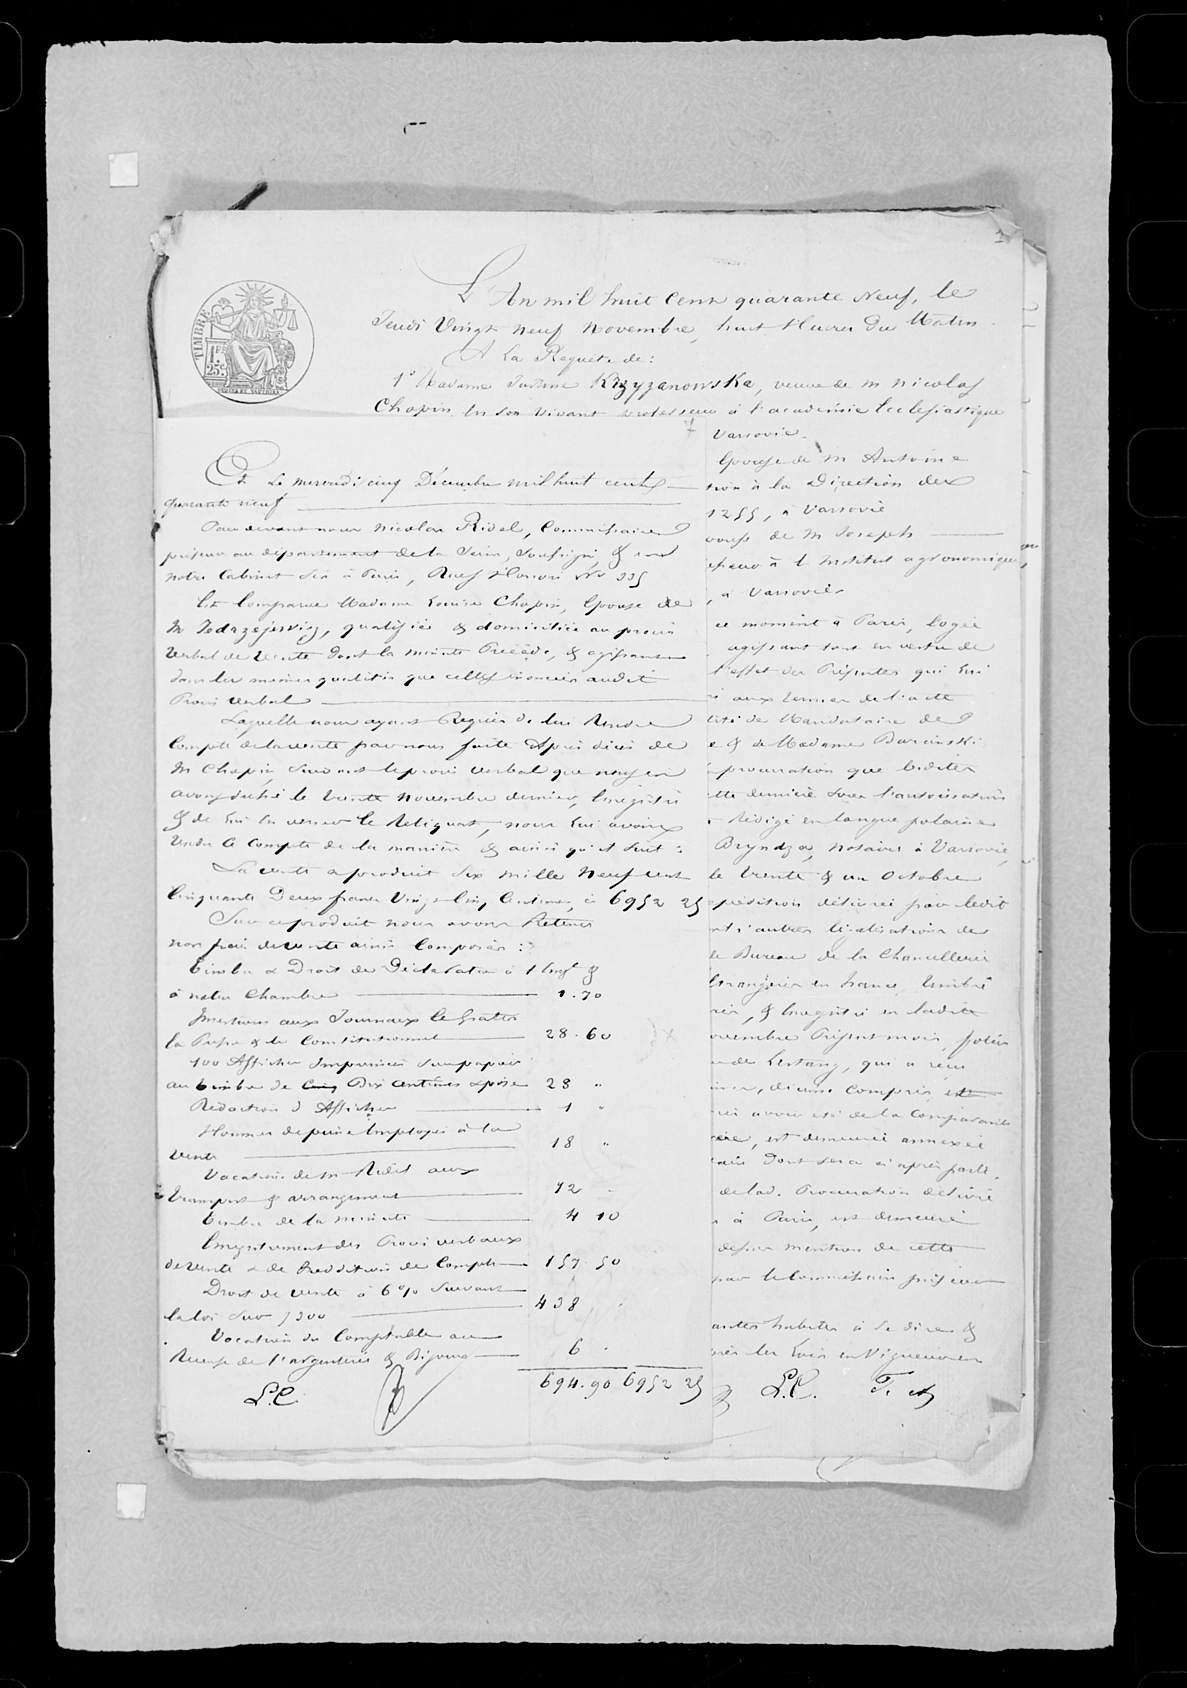 TIMBRE
1 F.
25 c.
L'An mil huit Cent quarante Neuf, le
Jeudi Vingt neuf Novembre, huit Heures du Matin
A La Requête de :
1° Madame Justine Krzyzanowska, veuve de M Nicolas
Chopin En son vivant professeur à l'académie Ecclésiastique
Et Le mercredi cinq Décembre mil huit cent
quarante neuf
Par devant nous Nicolas Ridel, Commissaire
priseur au département de la Seine, Soussigné, & en
notre Cabinet Sis à Paris, Rue St Honoré No 335
Est Comparue Madame Louise Chopin, Epouse de
M Jedrzejewicz, qualifiée & domiciliée au procès
Verbal de Vente dont la minute Précède, & agissant
dans les mêmes qualités que celles énoncées audit
Procès Verbal
Laquelle nous ayant Requis de lui Rendre
Compte de la vente par nous faite Après décès de
M Chopin, Suivant le procès verbal que nous en
avons dressé le Trente Novembre dernier, Enregistré
& de lui en verser le Reliquat, nous lui avons
Rendu ce Compte de la manière & ainsi qu'il Suit :
La vente a produit Six Mille Neuf cent
Cinquante Deux francs Vingt Cinq Centimes, ci 6952 25
Sur ce produit nous avons Retenu
nos frais de vente ainsi Composés :
Timbre & Droit de Déclaration à l'Enregt &
à notre Chambre 1.70
Insertions aux Journaux
la Presse & le Constitutionnel 28.60
100 Affiches Imprimées Sur papier
au timbre de Cinq Dix Centimes & pose 28 "
Rédaction d'Affiches 1 "
Hommes de peine Employés à la
Vente 18 "
Vacations de M Ridel aux
transport & arrangement 12
Timbre de la minute 4 10
Enregistrement des Procès verbaux
de vente & de Reddition de Compte 157 50
Droit de vente à 6 % Suivant
la loi Sur 7300 438
Vacation du Comptable au
l'argenterie & Bijoux 6
694.90 6952 25
L.C.
Varsovie.
Epouse de M Antoine
à la Direction des
1255, à Varsovie
de M Joseph
à l'Institut agronomique,
, à Varsovie
ce moment à Paris, Logée
agissant tant en vertu de
l'effet des Présentes qui lui
aux termes de l'acte
de Mandataire de
e & de Madame Barcinski
procuration que ledit
dernière Sous l'autorisation
Rédigé en langue polonaise
Bryndza, Notaire à Varsovie,
le Trente & un Octobre
délivrée par ledit
d'autres légalisations de
le Bureau de la Chancellerie
en france, timbré
, & Enregistré en ladite
Présent mois, folio
de Lestang, qui a reçu
, décime Compris,
avoir été de la Comparante
, est demeurée annexée
dont sera ci après parlé.
de lad. Procuration délivré
à Paris, est demeuré
mention de cette
par le Commissaire priseur
habiles à Se dire &
les Lois en Vigueur en
L.C.